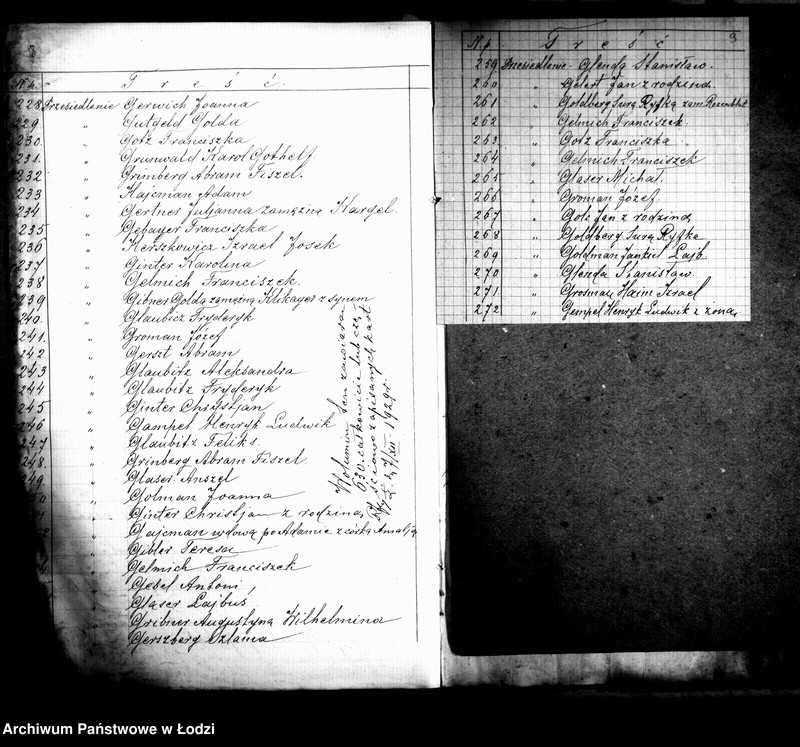 N.p. Treść
228 Przesiedlenie Gerwich Joanna
229 „ Gutgeld Golda
230 „ Gotz Franciszka
231 „ Grunwald Karol Gothelf
232 „ Grinberg Abram Fiszel.
233 „ Hajcman Adam
234 „ Gertner Juljanna zamężna Hargel.
235 „ Gebauer Franciszka
236 „ Herszkowicz Izrael Josek
237 „ Ginter Karolina
238 „ Gelmich Franciszek.
239 „ Gibner Golda zamężny Klikayes z synem
240 „ Glaubicz Fryderyk
241 „ Groman Józef
242 „ Gerszt Abram
243 „ Glaubitz Aleksandra
244 „ Glaubitz Fryderyk
245 „ Ginter Chrystjan
246 „ Gampel Henryk Ludwik
247 „ Glaubitz Feliks.
248 „ Grinberg Abram Fiszel.
249 „ Glaser Anszel
„ Golman Joanna
„ Ginter Christjan z rodziną
„ Gajcman wdową po Adamie z córką Amalją
„ Gibler Teresa
„ Gelmich Franciszek
Gesel Antoni
Glaser Lajbuś
Gribner Augustyna Wilhelmina
Gerszberg Szlama
Wolumin ten zawiera
630. całkowicie lub czę-
ściowo zapisanych kart
XII 1929 r.
3
N.p. Treść
259 Przesiedlenie Glenda Stanisław.
260 „ Gelert Jan z rodziną.
261 „ Goldberg Sura Ryfka zam. Rozenblat
262 „ Gelmich Franciszek.
263 „ Gotz Franciszka
264 „ Gelmich Franciszek
265 „ Glaser Michał.
266 „ Groman Józef.
267 „ Golc Jan z rodziną
268 „ Goldberg Sura Ryfka
269 „ Goldman Jankiel Lajb
270 „ Glenda Stanisław.
271 „ Grosman Haim Izrael
272 „ Gempel Henryk Ludwik z żoną.
Archiwum Państwowe w Łodzi